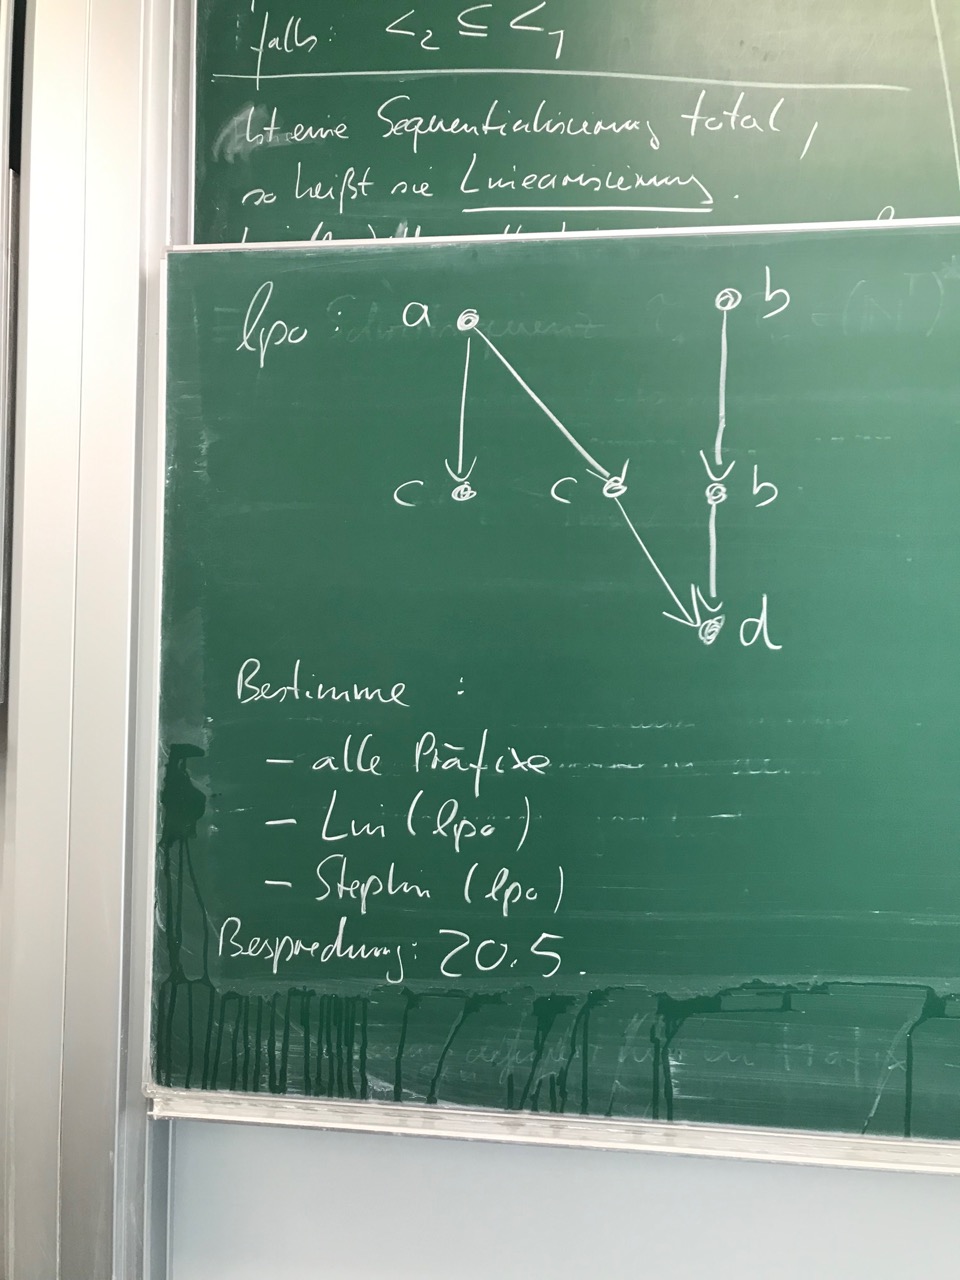 falls: <₂ ⊆ <₁
Ist eine Sequentialisierung total,
so heißt sie Linearisierung.
lpo: a b
c c b
d
Bestimme :
- alle Präfixe
- Lin (lpo)
- Steplin (lpo)
Besprechung: 20.5.